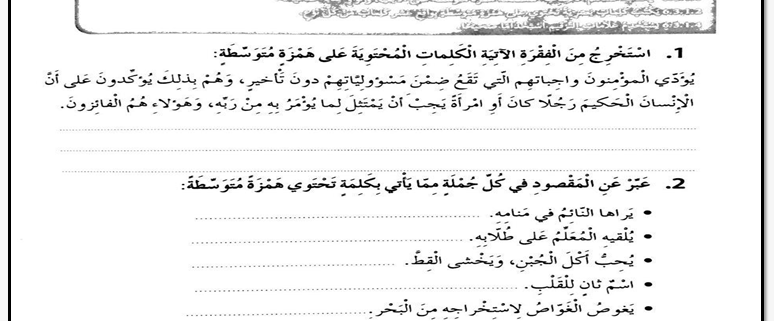 1. اسْتَخْرِجُ مِنَ الْفِقْرَةِ الآتِيَةِ الْكَلِماتِ الْمُحْتَوِيَةَ عَلى هَمْزَةٍ مُتَوَسِّطَةٍ:
يُؤَدّي الْمؤْمِنونَ واجِباتِهِم الَّتي تَقَعُ ضِمْنَ مَسْؤولِيّاتِهِمْ دونَ تَأْخيرٍ، وَهُمْ بِذلِكَ يُؤكّدونَ عَلى أَنَّ
الْإِنْسانَ الْحَكيمَ رَجُلًا كانَ أَوِ امْرأَةً يَجِبُ أَنْ يَمْتَثِلَ لِما يُؤْمَرُ بِهِ مِنْ رَبِّهِ، وَهَؤلاءِ هُمُ الْفائِزونَ.
2. عَبّرْ عَنِ الْمَقْصودِ في كُلِّ جُمْلَةٍ مِمّا يَأْتي بِكَلِمَةٍ تَحْتَوي هَمْزَةً مُتَوَسِّطَةً:
• يَراها النّائِمُ في مَنامِهِ.
• يُلْقيهِ الْمُعَلِّمُ عَلى طُلّابِهِ.
• يُحِبُّ أَكْلَ الْجُبْنِ، وَيَخْشى الْقِطَّ.
• اسْمٌ ثانٍ لِلْقَلْبِ.
• يَغوصُ الْغَوّاصُ لِاسْتِخْراجِهِ مِنَ الْبَحْرِ.